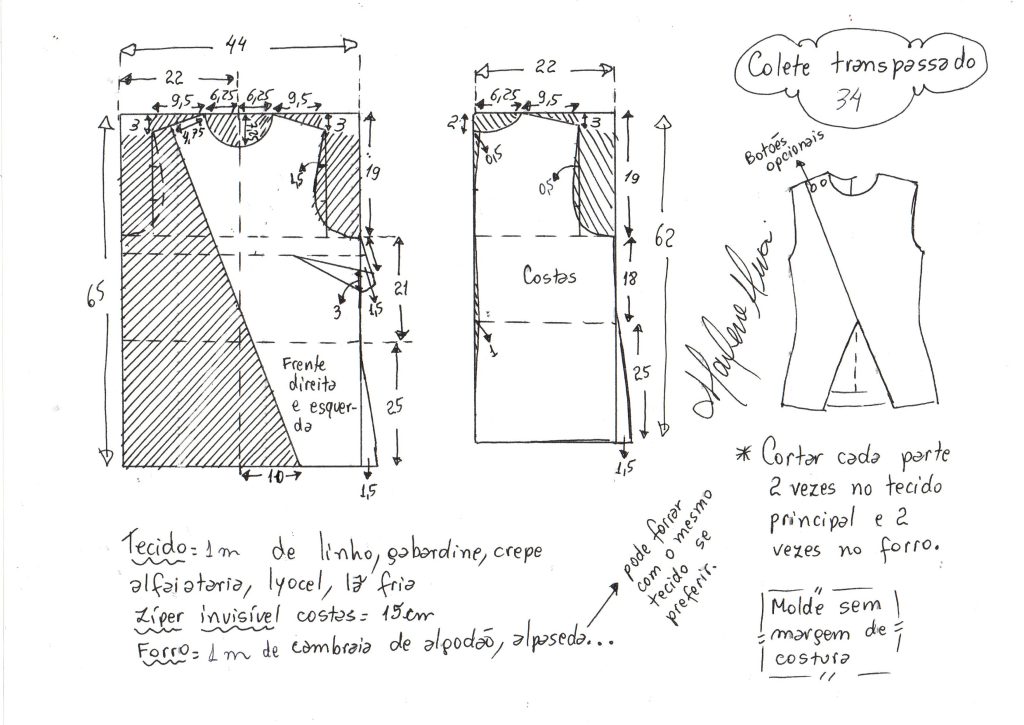 44
22
9,5
6,25
6,25
9,5
3
4,75
7,25
3
1,5
19
65
3
1,5
21
Frente
direita
e esquer-
da
25
10
1,5
22
6,25
9,5
2
3
0,5
0,5
19
62
Costas
18
1
25
1,5
Colete transpassado
34
Botões
opcionais
Marlene Mukai
* Cortar cada parte
2 vezes no tecido
principal e 2
vezes no forro.
Tecido = 1m de linho, gabardine, crepe
alfaiataria, lyocel, lã fria
Zíper invisível costas = 15cm
Forro = 1m de cambraia de algodão, alpaseda...
pode forrar
com o mesmo
tecido se
preferir.
Molde sem
margem de
costura